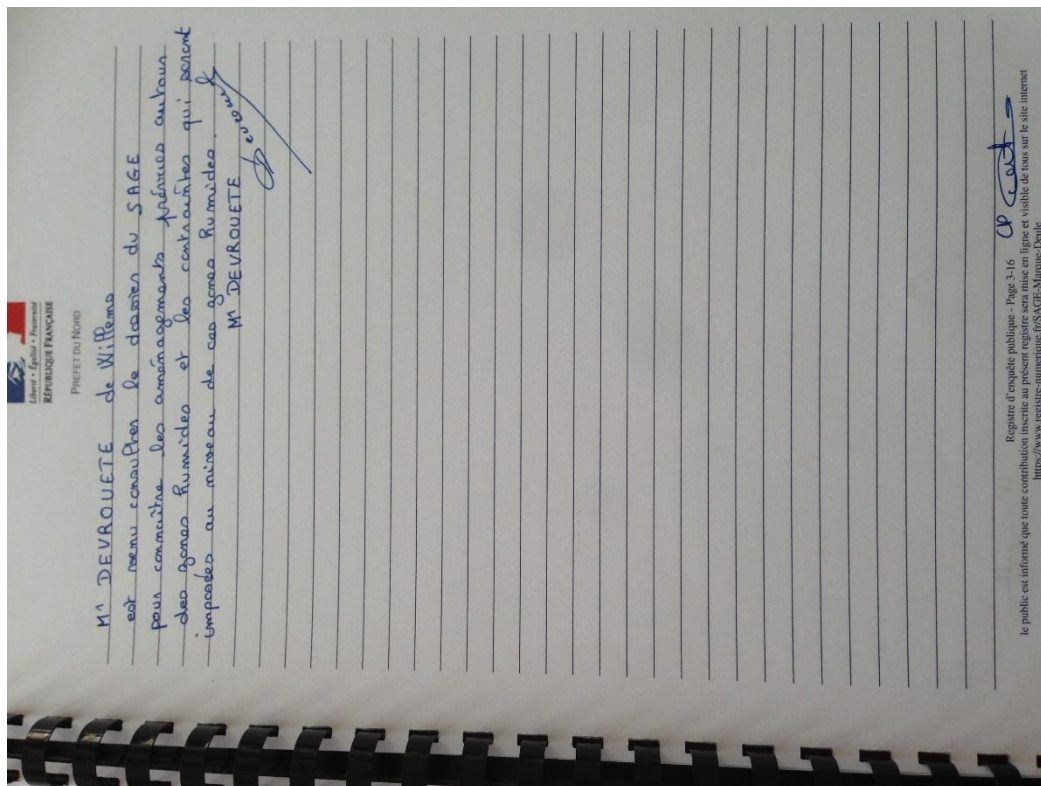 Liberté • Égalité • Fraternité
RÉPUBLIQUE FRANÇAISE
PREFET DU NORD
Mr DEVROUETE de Willems
est venu consulter le dossier du SAGE
pour connaître les aménagements prévues autour
des zones humides et les contraintes qui seront
imposées au niveau de ces zones humides.
Mr DEVROUETE
Registre d'enquête publique - Page 3-16
CP
le public est informé que toute contribution inscrite au présent registre sera mise en ligne et visible de tous sur le site internet
https://www.registre-numerique.fr/SAGE-Marque-Deule